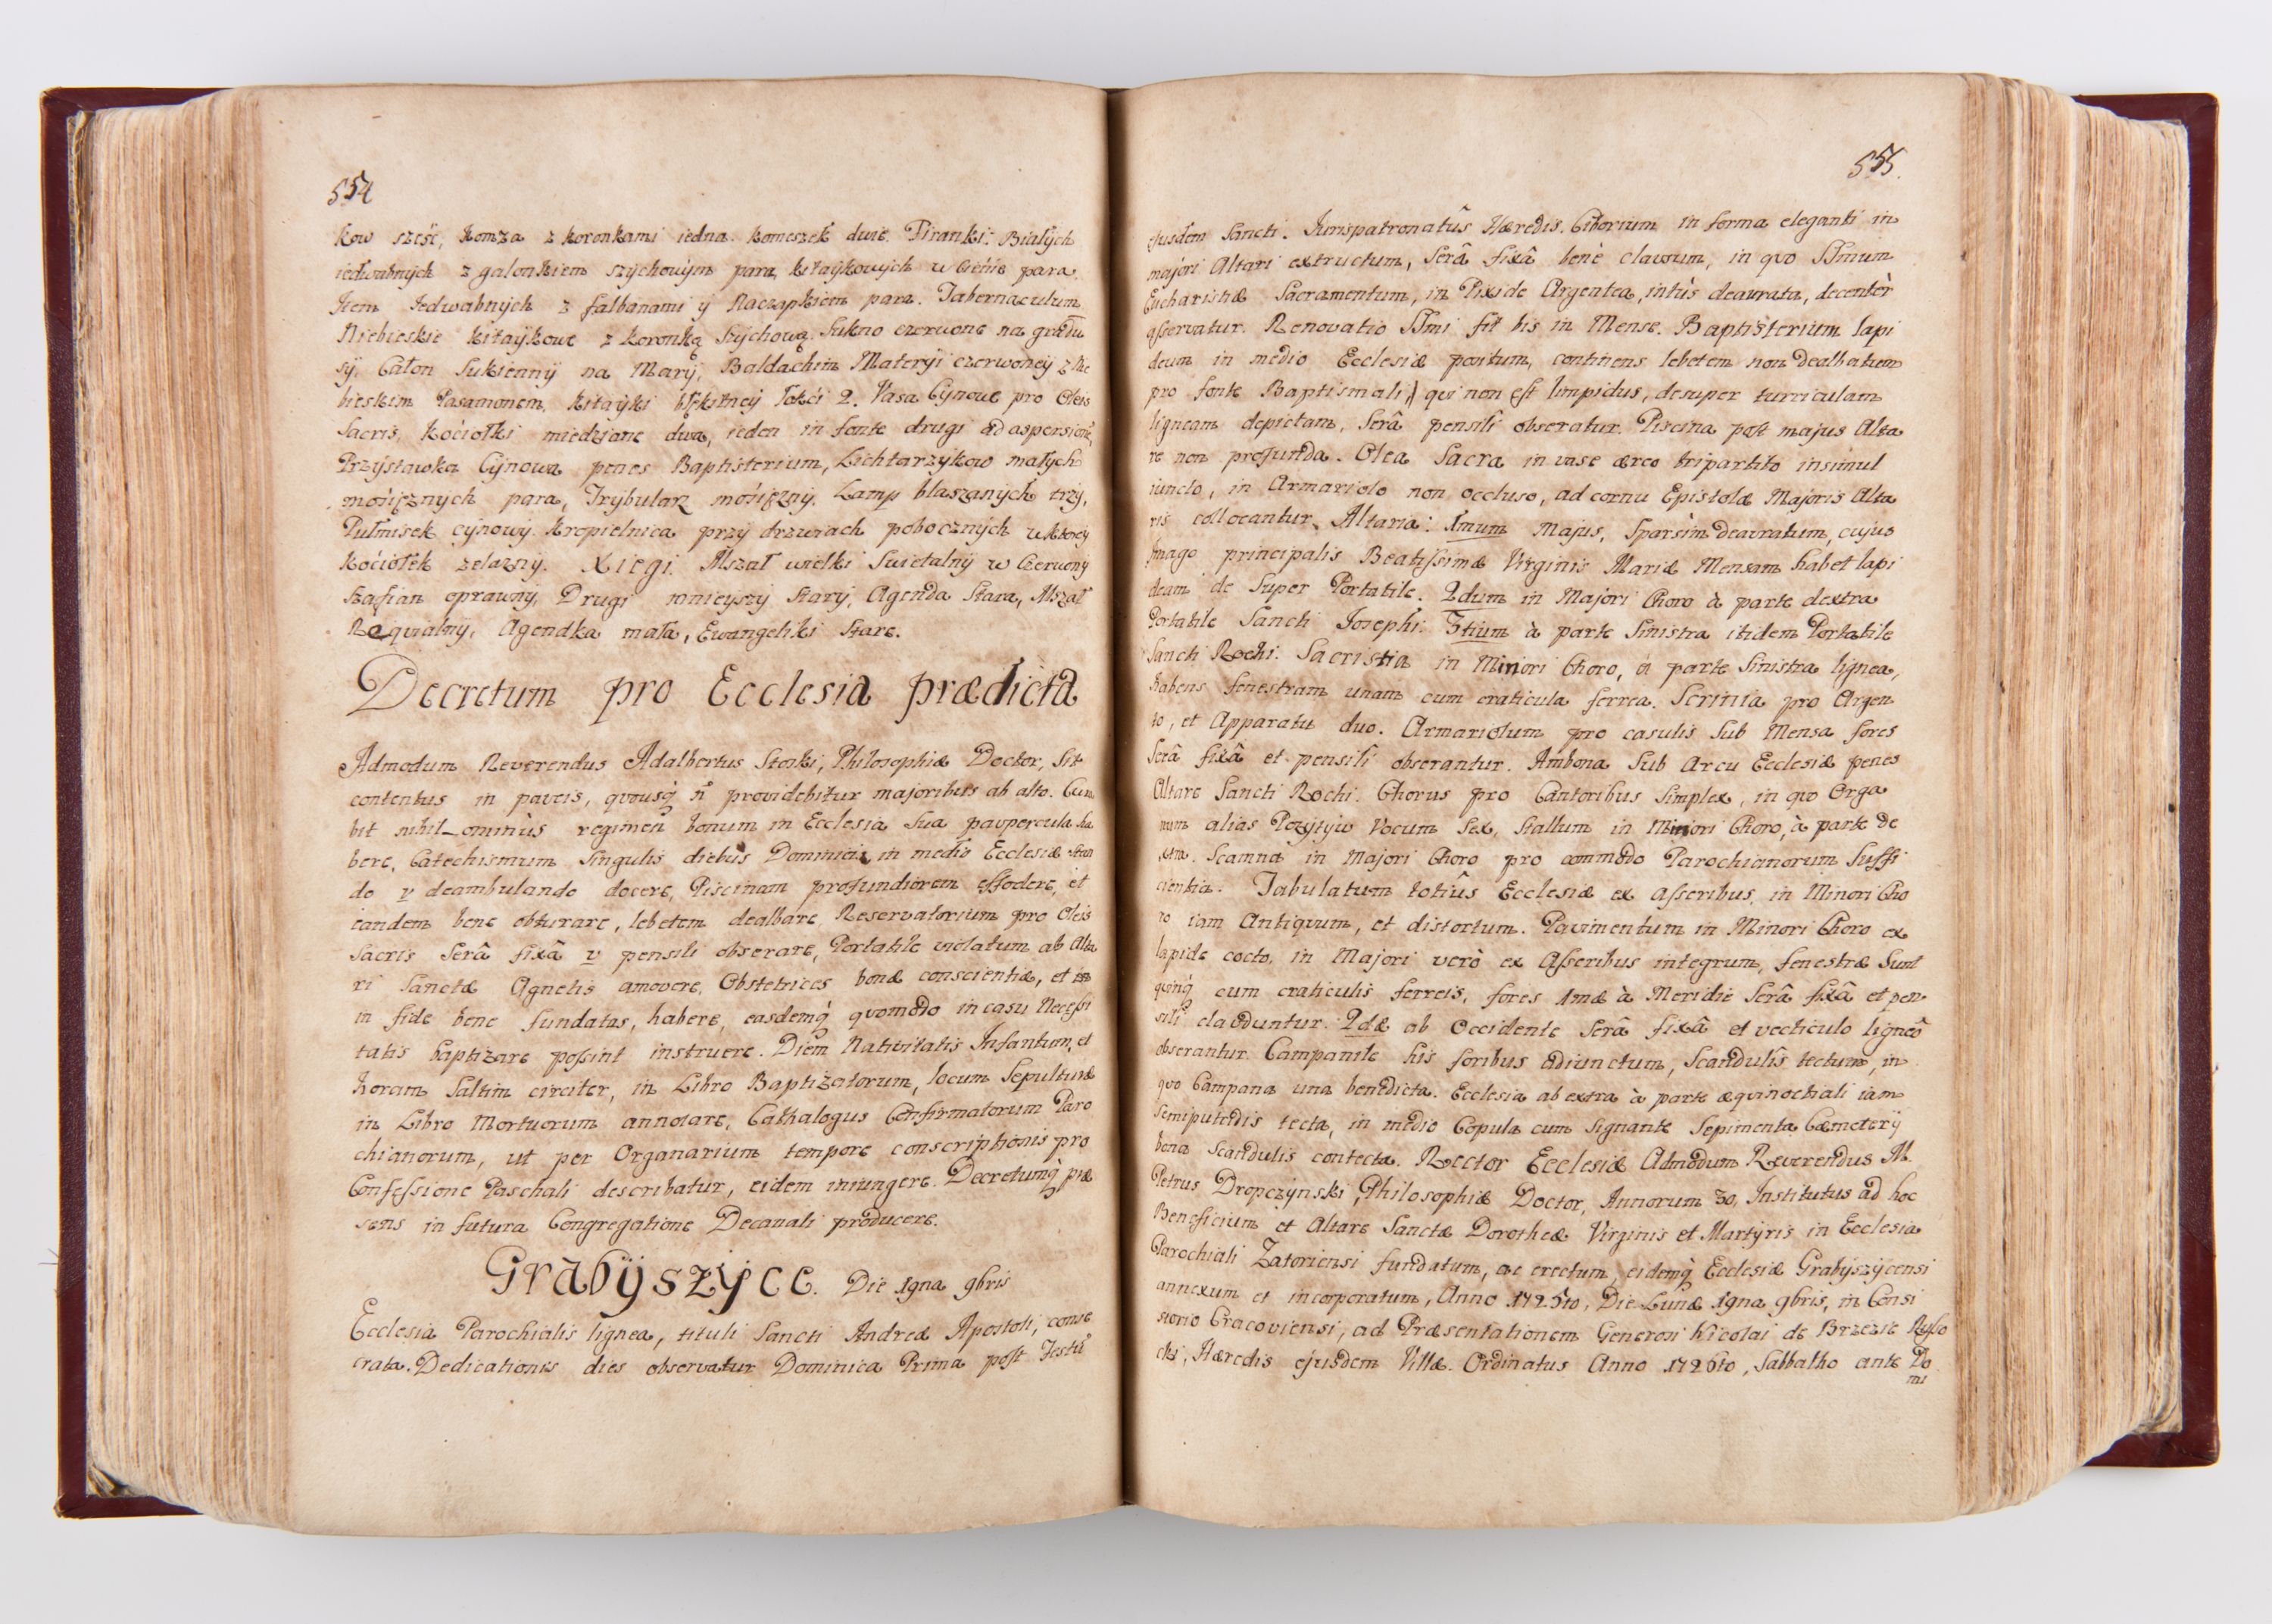 554
kow sześć, komza z koronkami iedna. komeszek dwie. Firanki: Białych
iedwabnych z galonkiem szychowym para, kitaykowych w Cienie para.
Item Iedwabnych z falbanami y Naczapkiem para. Tabernaculum
Niebieskie kitaykowe z koronką Szychową. Sukno czerwone na gradu
sy, Całon Sukienny na Mary, Baldachim Materyi czerwoney z Nie
bieskim Pasamonem, kitayki błękitney łokći 2. Vasa Cynowe pro Oleis
Sacris, kociołki miedziane dwa, ieden in fonte drugi ad aspersionē,
Przystawka Cynowa penes Baptisterium, Lichtarzykow małych
mosięznych para, Trybularz mosięzny. Lamp blaszanych trzy,
Pułmisek cynowy. kropielnica przy drzwiach pobocznych w ktorey
kociołek zelazny. Xięgi. Mszał wielki Swietalny w Czerwony
Szafian oprawny, Drugi mnieyszy Stary, Agenda Stara, Mszał
Requialny, Agendka mała, Ewangeliki Stare.
Decretum pro Ecclesia prædicta
Admodum Reverendus Adalbertus Stoski, Philosophiæ Doctor, Sit
contentus in paucis, quousq́ n̄ providebitur majoribus ab alto. Cura
bit nihil_ominùs regimen bonum in Ecclesia Sua paupercula ha
bere, Catechismum Singulis diebus Dominicis in medio Ecclesiæ Stan
do v deambulando docere, Piscinam profundiorem effodere, et
eandem bene obturare, lebetem dealbare, Reservatorium pro Oleis
Sacris Serâ fixâ v pensili obserare, Portatile violatum ab Alta
ri Sanctæ Agnetis amovere, Obstetrices bonæ conscientiæ, et
in fide bene fundatas, habere, easdemq́ quomodo in casu Necessi
tatis baptizare possint instruere. Diem Nativitatis Infantum, et
horam Saltim circiter, in Libro Baptizatorum, locum Sepulturæ
in Libro Mortuorum annotare, Cathalogus Confirmatorum Paro
chianorum, ut per Organarium tempore conscriptionis pro
Confessione Paschali describatur, eidem iniungere. Decretumq́ præ
sens in futura Congregatione Decanali producere.
Grabÿszÿce. Die 19na 9bris
Ecclesia Parochialis lignea, tituli Sancti Andreæ Apostoli, conse
crata. Dedicationis dies observatur Dominica Prima post Festū
555.
ejusdem Sancti. Jurispatronatûs Hæredis. Ciborium in forma eleganti in
majori Altari extructum, Serâ fixâ benè clausum, in quo SSmum
Eucharistiæ Sacramentum, in Pixide Argentea, intùs deaurata, decentèr
asservatur. Renovatio SSmi fit bis in Mense. Baptisterium lapi
deum in medio Ecclesiæ positum, continens lebetem non dealbatum
pro fonte Baptismali, qui non est limpidus, desuper turriculam
ligneam depictam, Serâ pensili obseratur. Piscina post majus Alta
re non profunda. Olea Sacra in vase æreo tripartito insimul
iuncto, in Armariolo non occluso, ad cornu Epistolæ Majoris Alta
ris collocantur. Altaria: 1mum Majus, Sparsim deauratum, cujus
Imago principalis Beatissimæ Virginis Mariæ Mensam habet lapi
deam de Super Portatile. 2dum in Majori Choro à parte dextra
Portatile Sancti Josephi. 3tium à parte Sinistra itidem Portatile
Sancti Rochi. Sacristia in Minori Choro, à parte Sinistra lignea,
habens fenestram unam cum craticula ferrea. Scrinia pro Argen
to, et Apparatu duo. Armariolum pro casulis Sub Mensa fores
Serâ fixâ et pensili obserantur. Ambona Sub Arcu Ecclesiæ penes
Altare Sancti Rochi. Chorus pro Cantoribus Simplex, in quo Orga
num alias Pozytyw Vocum Sex, Stallum in Minori Choro, à parte de
xtra. Scamna in Majori Choro pro commodo Parochianorum Suffi
cientia. Tabulatum totiûs Ecclesiæ ex asseribus, in Minori Cho
ro iam Antiquum, et distortum. Pavimentum in Minori Choro ex
lapide cocto, in Majori verò ex Asseribus integrum, fenestræ Sunt
quinq́ cum craticulis ferreis, fores 1mæ à Meridie Serâ fixâ et pen
sili clauduntur. 2dæ ab Occidente Serâ fixâ et vecticulo ligneô
obserantur. Campanile his foribus adiunctum, Scandulis tectum, in
quo Campana una benedicta. Ecclesia ab extra à parte æquinoctiali iam
Semiputridis tecta, in medio Copula cum Signante Sepimenta Cæmeterij
bona Scandulis contecta. Rector Ecclesiæ Admodum Reverendus M.
Petrus Dropczynski, Philosophiæ Doctor, Annorum 30, Institutus ad hoc
Beneficium et Altare Sanctæ Dorotheæ Virginis et Martyris in Ecclesia
Parochiali Zatoriensi fundatum, ac erectum, eidemq́ Ecclesiæ Grabyszycensi
annexum et incorporatum, Anno 1725to, Die Lunæ 19na 9bris, in Consi
storio Cracoviensi, ad Præsentationem Generosi Nicolai de Brzezie Russo
cki, Hæredis ejusdem Villæ. Ordinatus Anno 1726to, Sabbatho ante Do
mi